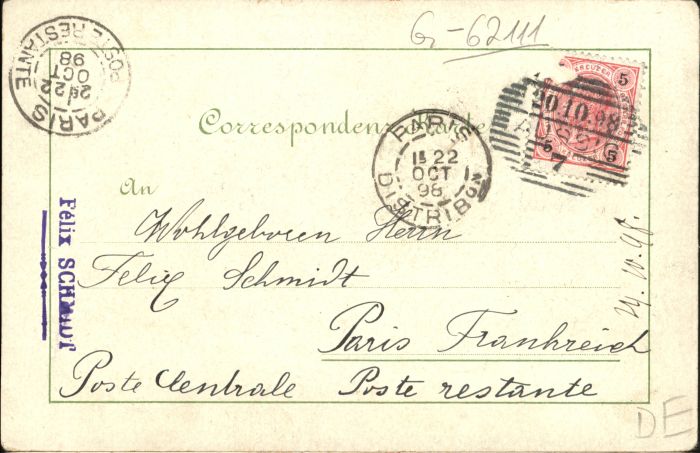 G-62111
POSTE RESTANTE
PARIS
2e 22
OCT
98
KREUZER
5
5
5
20.10.98
AUSSI
7
Correspondenz-Karte
PARIS
DISTRIBON
1E 22
OCT
98
An
Wohlgeboren Herrn
Felix Schmidt
Paris Frankreich
Poste Centrale Poste restante
Félix SCHMIDT
19.10.98.
DE